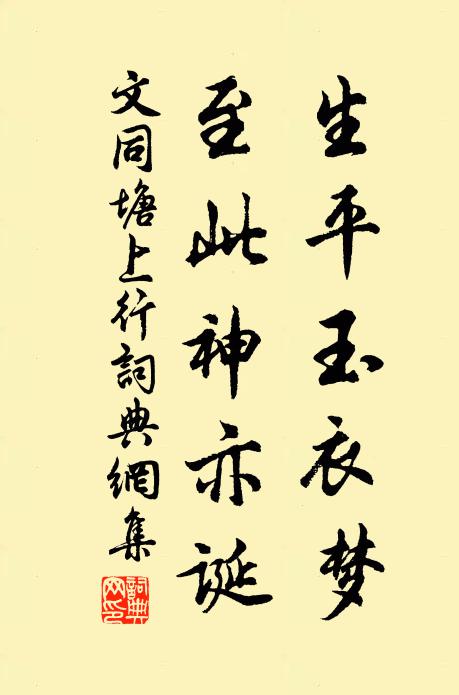 生平玉衣梦
至此神亦诞
文同塘上行詞典網集
詞典網印